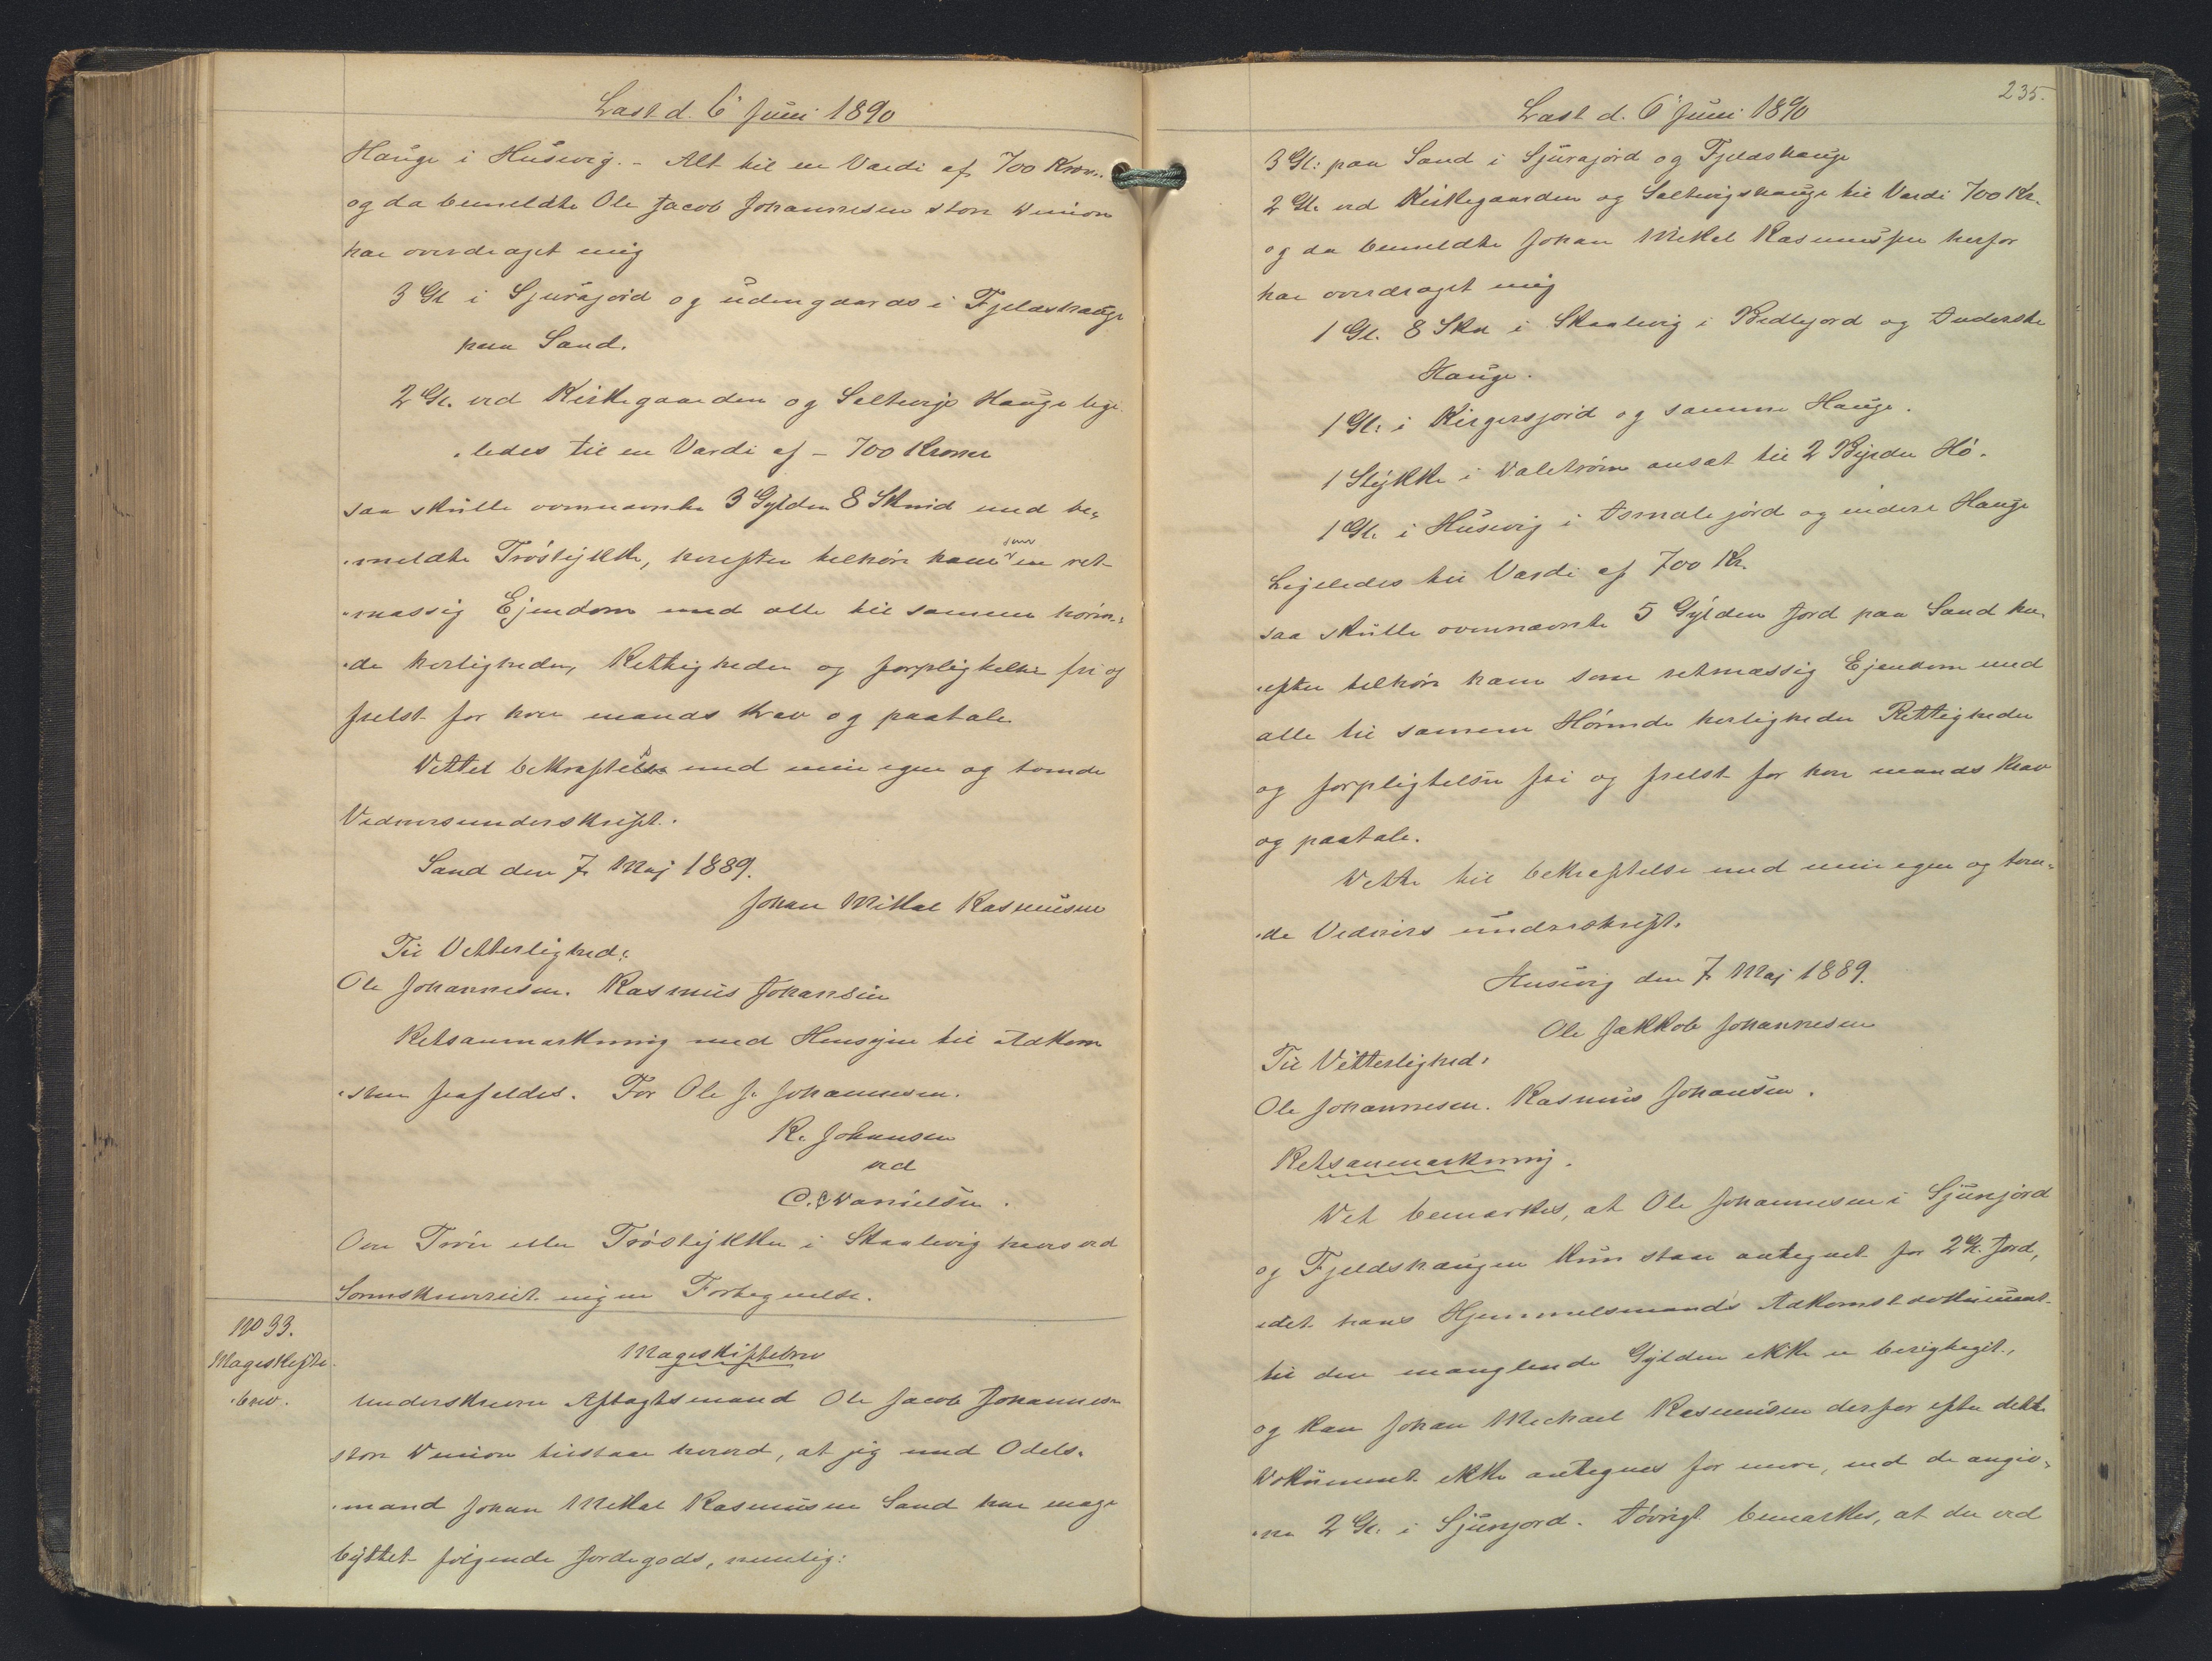 Læst d. 6' Juni 1890
Hauge i Husevig. - Alt til en Værdi af 700 Kron..
og da bemeldte Ole Jacob Johannesen store Dimon
har overdraget mig
3 Gl i Sjurajord og udengaards i Fjeldshauge
paa Sand.
2 Gl. ved Kirkegaarden og Saltvigs Hauge lige
„ledes til en Værdi af - 700 Kroner
saa skulle ovennævnte 3 Gylden 8 Skind med be„
„meldte Tröstykke, herefter tilhöre ham som en ret
„mæssig Ejendom med alle til samme hörin„
„de herligheder, Rettigheder og forpligtelser fri og
frelst for hver mands Krav og paatale
Dettet bekræftes med min egen og tvende
Vednersunderskrift.
Sand den 7 Maj 1889.
Johan Mikal Rasmusen
Til Vetterlighed:
Ole Johannesen. Rasmus Johansen
Retsanmærkning med Hensyn til Adkom
„sten frafaldes. For Ole J. Johannesen.
R. Johansen
ved
C. Danielsen.
Over Tröer eller Tröstykker i Skaalevig haves ved
Sorenskriveriet ingen Fortegnelse.
No 33.
Mageskifte
„brev.
Mageskiftebrev
Underskrevne Aftagtsmand Ole Jacob Johannesen
store Dimon tilstaar herved, at jeg med Odels„
„mand Johan Mikal Rasmusen Sand har mage
byttet fölgende Jordegods, nemlig:
235.
Læst d. 6' Juni 1890
3 Gl: paa Sand i Sjurajord og Fjeldshauge
2 Gl. ved Kirkegaarden og Saltvigshauge til Værdi 700 Kr.
og da bemeldte Johan Mikal Rasmussen herfor
har overdraget mig
1 Gl. 8 Skn i Skaalevig i Bedlejord og Inderste
Hauge.
1 Gl: i Kirgersjord og samme Hauge.
1 Stykke i Valetröm ansat til 2 Byrder Hö.
1 Gl. i Husevig i Asmalsjord og inderst Hauge
Ligeledes til Værdi af 700 Kr.
saa skulle ovennævnte 5 Gylden Jord paa Sand her„
„efter tilhöre ham som retmæssig Ejendom med
alle til samme Hörende herligheder Rettigheder
og forpligtelser fri og frelst for hver mands Krav
og paatale.
Dette til bekræftelse med min egen og tven„
„de Vedners underskrift.
Husevig den 7 Maj 1889.
Ole Jakkob Johannesen
Til Vetterlighed:
Ole Johannesen. Rasmus Johansen.
Retsanmærkning.
Det bemærkes, at Ole Johannesen i Sjurjord
og Fjeldshaugen kun staar antegnet for 2 Gl. Jord,
idet hans Hjemmelsmands Adkomstdokument
til den manglende Gylden ikke er berigtiget,
og kan Johan Michael Rasmusen derfor efter dette
Dokument ikke antegnes for mere, end de angiv„
„ne 2 Gl. i Sjurjord. Iövrigt bemærkes, at der ved